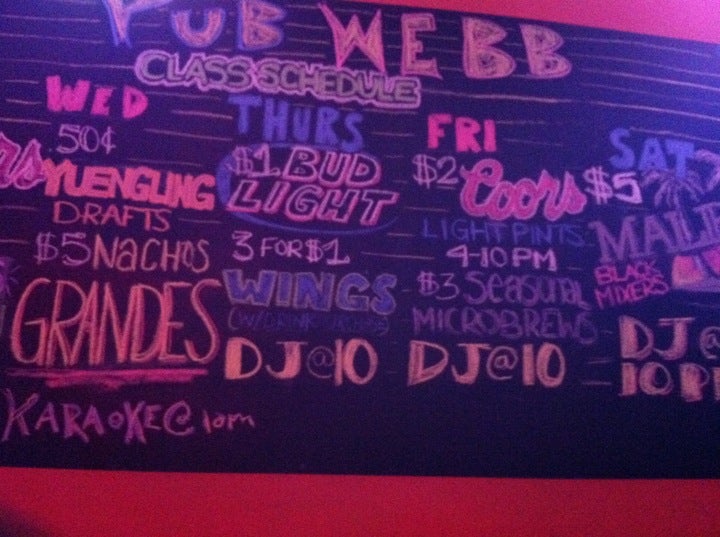 PUB WEBB
CLASS SCHEDULE
WED
50¢
YUENGLING
DRAFTS
$5 NACHOS
GRANDES
KARAOKE@1am
THURS
$1 BUD
LIGHT
3 FOR $1
WINGS
DJ@10
FRI
$2 Coors
LIGHT PINTS
4-10PM
$3 Seasonal
MICROBREWS
DJ@10
SAT
$5
BLACK
MIXERS
DJ@
10P